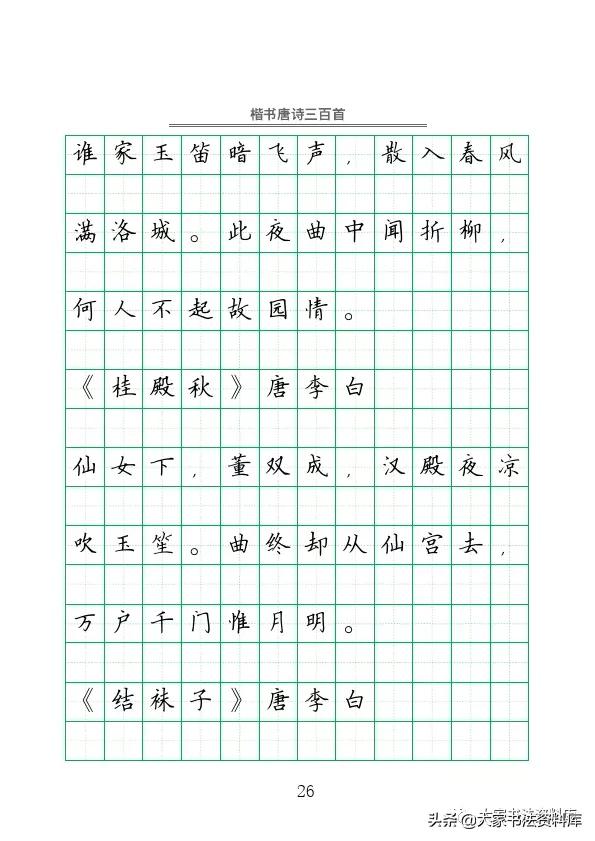 楷书唐诗三百首
谁家玉笛暗飞声，散入春风
满洛城。此夜曲中闻折柳，
何人不起故园情。
《桂殿秋》唐李白
仙女下，董双成，汉殿夜凉
吹玉笙。曲终却从仙宫去，
万户千门惟月明。
《结袜子》唐李白
26
大家书法资料库
头条@大家书法资料库